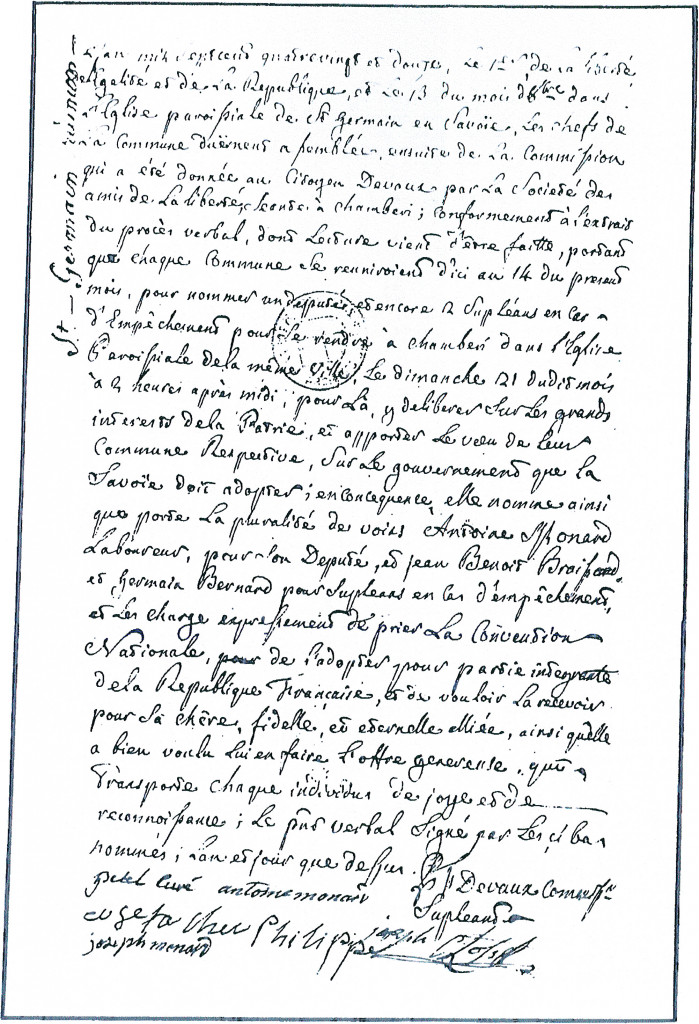 L'an mil sept cent quatrevingt et douze, Le 1er de la liberté
Egalité et de La Republique, et Le 13 du mois d'8bre dans
L'Eglise paroissiale de St Germain en Savoïe, Les chefs de
La Commune düement assemblés, ensuite de La Commission
qui a été donnée au Citoyen Devaux par La Societé des
amis de La liberté, seante à Chamberi; Conformement à l'extrait
du procès verbal, dont Lecture vient d'être faitte, portant
que chaque Commune se reuniroient d'ici au 14 du present
mois, pour nommer un deputé, et encore 2 Supléans en Cas
d'Empêchement pour se rendre à Chamberi dans l'Eglise
Paroissiale de la même Ville, Le dimanche 21 dudit mois
à 2 heures après midi; pour Là, y deliberer Sur Les grands
interests de La Patrie, et apporter Le vœu de Leur
Commune Respective, Sur Le gouvernement que La
Savoïe doit adopter; en Consequence, elle nomme ainsi
que porte La pluralité de voix Antoine Monard
Laboureur, pour son Deputé, et jean Benoit Braissand
et Germain Bernard pour Supleans en Cas d'empêchement,
et Les Charge expressément de prier La Convention
Nationale, pour de l'adopter pour partie integrante
de La Republique Française, et de vouloir La recevoir
pour Sa chère, fidelle, et eternelle alliée, ainsi qu'elle
a bien voulu Lui en faire L'offre genereuse, qui
Transporte Chaque individus de joye et de
reconnoissance; Le pnt verbal Signé par Les ci bas
nommés; L'an et jour que dessus.
Devaux Comissre
petel curé antoine monard
Supleant
Philippe joseph
joseph monard
St Germain